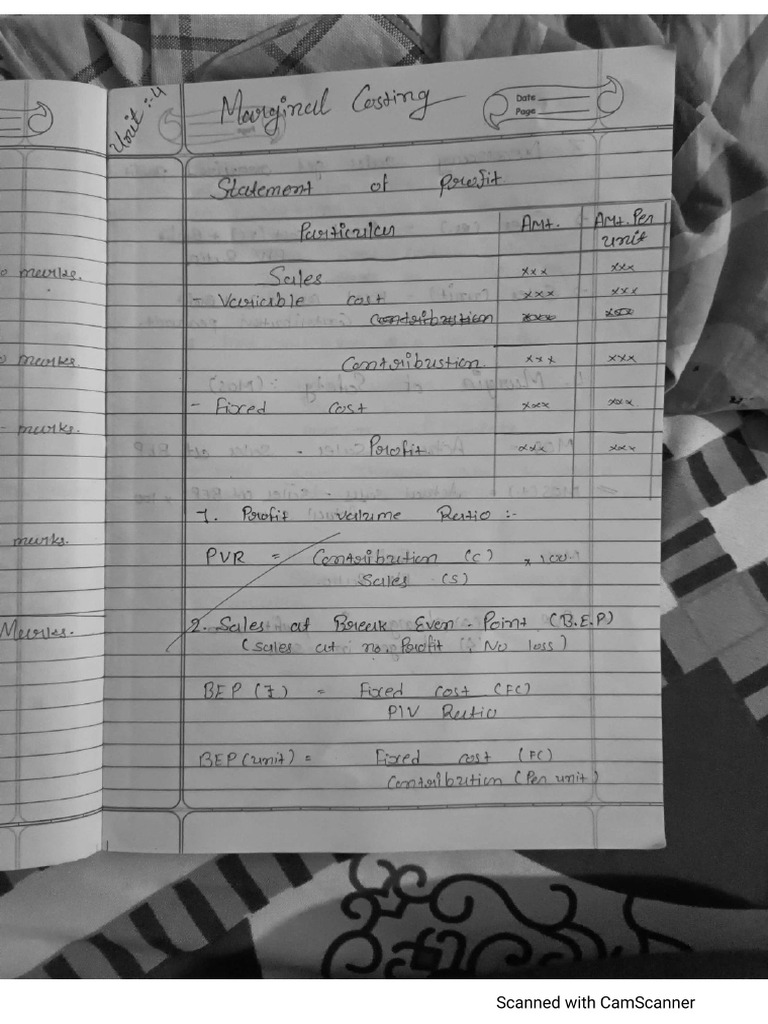 Unit :- 4
Marginal Costing
Date
Page
Statement of Profit
Particular Amt. Amt. Per unit
Sales xxx xxx
- Variable cost xxx xxx
Contribution xxx xxx
Contribustion xxx xxx
- Fixed cost xxx xxx
Profit xxx xxx
1. Profit valume Ratio :-
PVR = Contribution (C) x 100
Sales (S)
2. Sales at Break Even - Point (B.E.P)
(Sales at no. Profit No loss)
BEP (₹) = Fixed cost (FC)
P/V Ratio
BEP (unit) = Fixed cost (FC)
Contribution (Per unit)
marks.
marks.
marks.
marks.
Marks.
Scanned with CamScanner